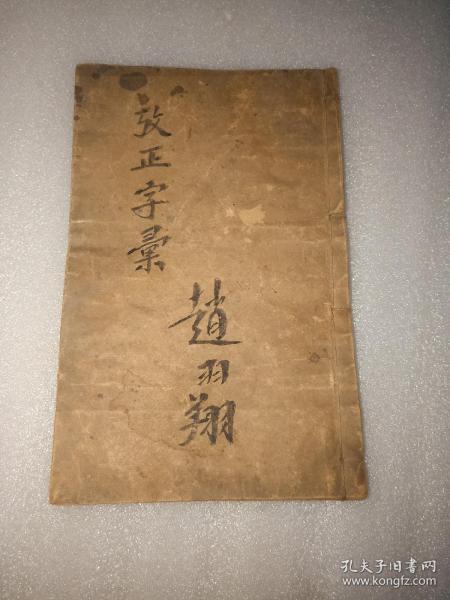 攷正字彙
趙羽翔
孔夫子旧书网
www.kongfz.com